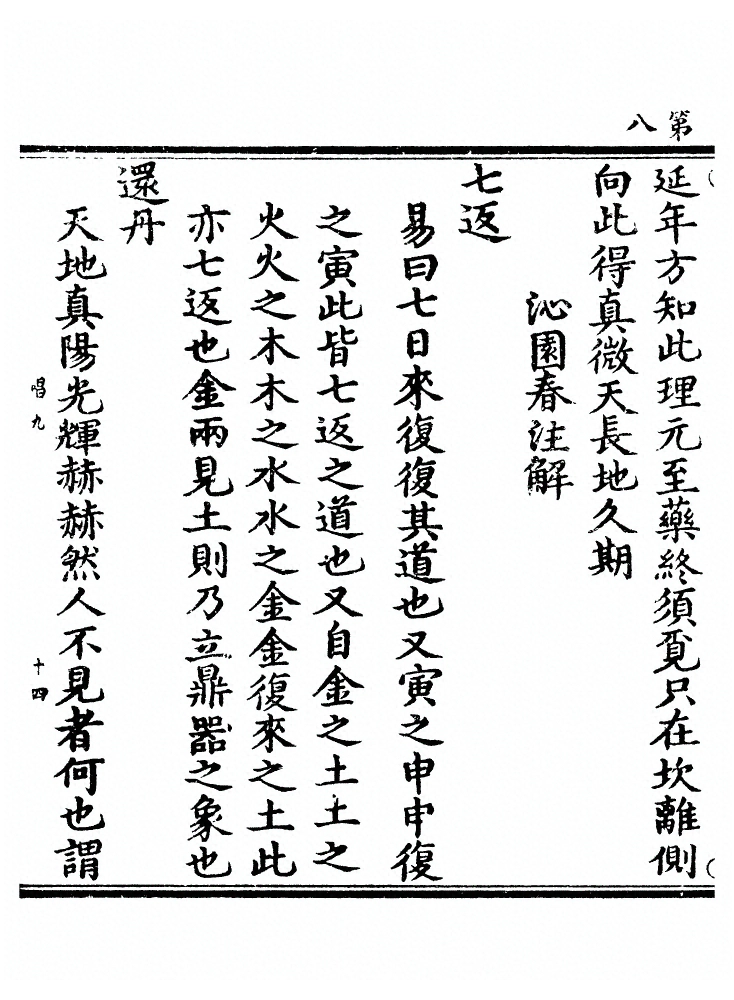 第八
延年方知此理元至藥終須覓只在坎離側
向此得真微天長地久期
沁園春注解
七返
易曰七日來復復其道也又寅之申申復
之寅此皆七返之道也又自金之土土之
火火之木木之水水之金金復來之土此
亦七返也金兩見土則乃立鼎器之象也
還丹
天地真陽光輝赫赫然人不見者何也謂
唱九
十四